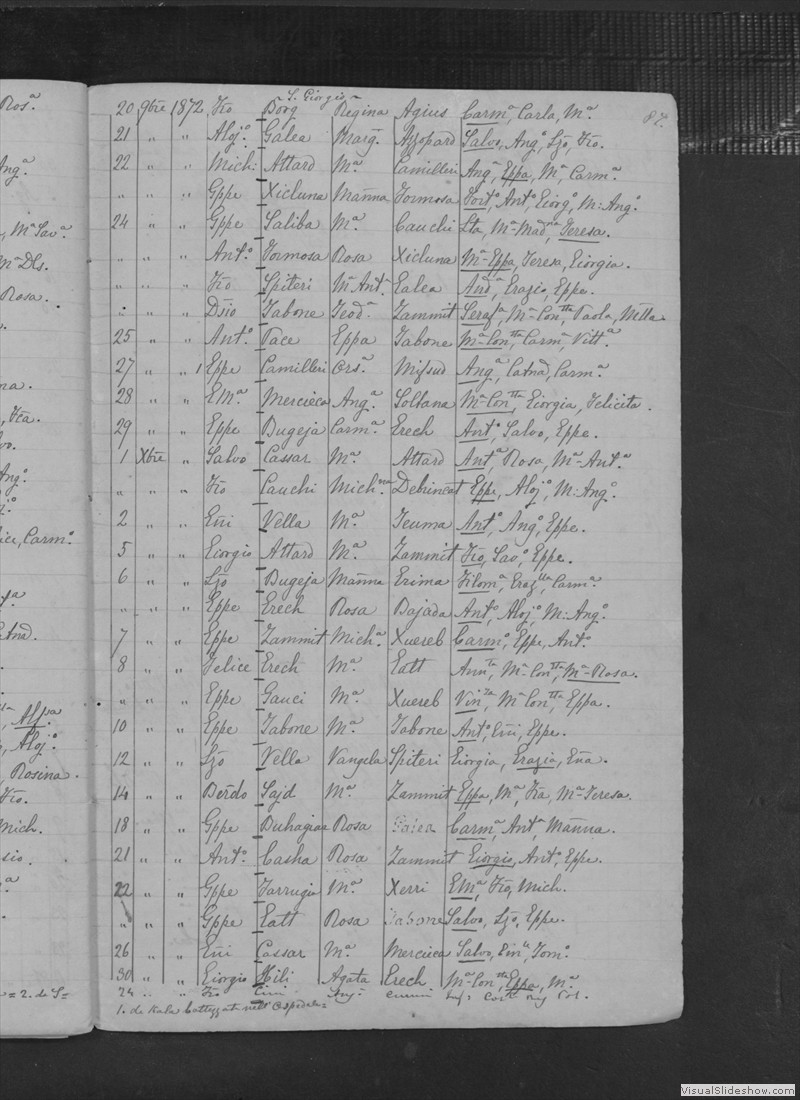 Rosª.
Angª.
, Mª Savª.
Mª Dls.
Rosa.
na.
, Fcª.
Angº.
ice, Carmº.
Alfsa
, Alojº.
, Rosina.
Fco.
Mich.
sio.
= 2. de S=
S. Giorgio
87.
20 9bre 1872 Fco Borg Regina Agius Carmª, Carla, Mª.
21 " " Alojº. Galea Margª. Azzopard Salvo, Angº, Ljo, Fco.
22 " " Mich: Attard Mª. Camilleri Angª, Eppa, Mª, Carmª.
" " " Gppe Xicluna Manna Formosa Fortº, Antº, Giorgº, M: Angº.
24 " " Gppe Saliba Mª. Cauchi Lta, Mª-Madna, Teresa.
" " " Antº. Formosa Rosa Xicluna Mª-Eppa, Teresa, Giorgia.
" " " Fco Spiteri Mª-Antª. Galea Andª, Grazia, Eppe.
" " " Dsio Tabone Teodª Zammit Serafª, Mª-Contta, Paola,
25 " " Antº. Pace Eppa Tabone Mª-Contta, Carmª Vittª
27 " " 1 Eppe Camilleri Orsª. Mifsud Angª, Catnª, Carmª.
28 " " E Mª. Mercieca Angª. Soltana Mª-Contta, Giorgia, Felicita.
29 " " Eppe Bugeja Carmª. Grech Antº, Salvo, Eppe.
1 Xbre " Salvo Cassar Mª. Attard Antª, Rosa, Mª-Antª
" " " Fco Cauchi Michna Debrincat Eppe, Alojº, M: Angº.
2 " " Eni Vella Mª Teuma Antº, Angº, Eppe.
5 " " Giorgio Attard Mª. Zammit Fco, Savº, Eppe.
6 " " Ljo Bugeja Manna Grima Filomª, Grazlla, Carmª.
" " " Eppe Grech Rosa Bajada Antº, Alojº, M: Angº.
7 " " Eppe Zammit Michª. Xuereb Carmº, Eppe, Antº.
8 " " Felice Grech Mª. Galt Annta, Mª-Contta, Mª-Rosa.
" " " Eppe Gauci Mª Xuereb Vinza, Mª Contta, Eppa.
10 " " Eppe Tabone Mª. Tabone Antº, Eni, Eppe.
12 " " Ljo Vella Vangela Spiteri Giorgia, Grazia, Ena.
14 " " Berdo Sajd Mª. Zammit Eppa, Mª, Fca, Mª-Teresa.
18 " " Gppe Buhagiar Rosa Galea Carmª, Antª, Manna.
21 " " Antº. Casha Rosa Zammit Giorgio, Antº, Eppe.
22 " " Gppe Farrugia Mª. Xerri E Mª, Fco, Mich.
" " " Gppe Galt Rosa Tabone Salvo, Ljo, Eppe.
26 " " Eni Cassar Mª. Mercieca Salvo, Vinº, Tomº.
30 " " Giorgio Hili Agata Grech. Mª Contta, Eppa, Mª.
24 " " Fco
1. da Kala battezzata nell'Ospedale=
VisualSlideshow.com